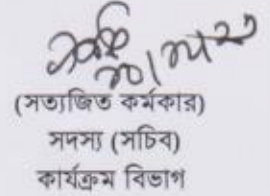 (সত্যজিত কর্মকার)
সদস্য (সচিব)
কার্যক্রম বিভাগ